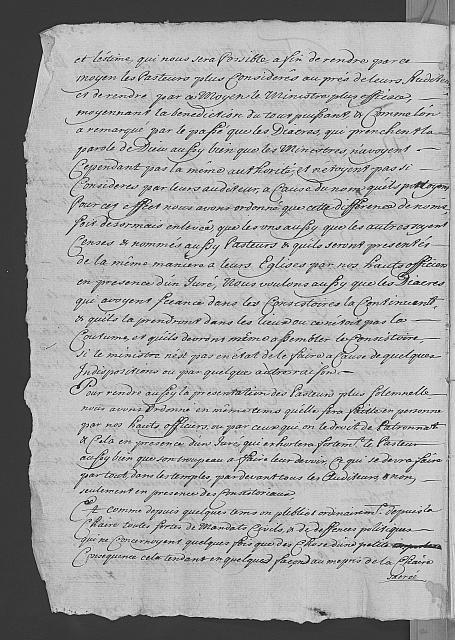 et l'estime, qui nous sera possible, afin de rendre par ce
moyen les Pasteurs plus considerés auprés de leurs Auditeurs
et de rendre par ce Moyen le Ministre plus efficace,
moyennant la benediction du tout puissant, & Comme l'on
a remarqué par le passé que les Diacres, qui prenchent la
parole de Dieu aussy bien que les Ministres, n'avoyent
Cependant pas la meme authorité, et n'etoyent pas si
Consideres par leurs auditeurs, a Cause du nom qu'ils
Pour cet effect nous avons ordonné que cette difference de noms
soit desormais enlevée & que les uns aussy que les autres soyent
Censes & nommés aussy Pasteurs & qu'ils seront presentés
de la même maniere a leurs Eglises par nos hauts officiers
en presence d'un Juré, Nous voulons aussy que les Diacres
qui avoyent seance dans les Consistoires la Continuent,
& qu'ils la prendront dans les lieux ou ce n'étoit pas la
Coutume, et qu'ils devront même assembler le Consistoire,
si le ministre n'est pas en état de le faire a Cause de quelques
Indispositions ou par quelque autre raison.
Pour rendre aussy la presentation des Pasteurs plus solemnelle
nous avons ordonné en même tems qu'elle sera faitte en personne
par nos hauts officiers, ou par ceux qui ont le droit de Patronnat
& Cela en presence d'un Juré, qui exhortera fortemt. le Pasteur
aussy bien que son troupeau a faire leur devoir, Ce qui se devra faire
par tout, dans les temples par devant tous les Auditeurs & non,
seulement en presence des Consistoriaux
Et comme depuis quelques tems on publioit ordinairemt. depuis la
Chaire toutes sortes de Mandats Civils, & de deffences politiques
qui ne concernoyent quelques fois que des Choses d'une petite
Consequence, cela tendant en quelques façons au mepris de la Chaire
sacrée